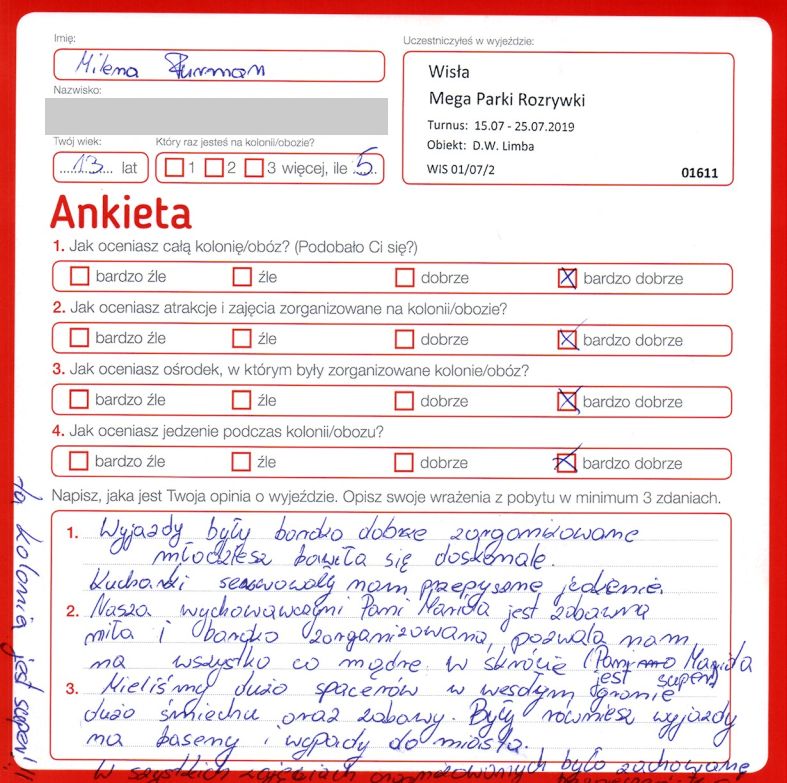 Imię:
Milena Furman
Nazwisko:
Twój wiek:
13 lat
Który raz jesteś na kolonii/obozie?
1 2 3 więcej, ile 5
Uczestniczyłeś w wyjeździe:
Wisła
Mega Parki Rozrywki
Turnus: 15.07 - 25.07.2019
Obiekt: D.W. Limba
WIS 01/07/2 01611
Ankieta
1. Jak oceniasz całą kolonię/obóz? (Podobało Ci się?)
bardzo źle źle dobrze bardzo dobrze
2. Jak oceniasz atrakcje i zajęcia zorganizowane na kolonii/obozie?
bardzo źle źle dobrze bardzo dobrze
3. Jak oceniasz ośrodek, w którym były zorganizowane kolonie/obóz?
bardzo źle źle dobrze bardzo dobrze
4. Jak oceniasz jedzenie podczas kolonii/obozu?
bardzo źle źle dobrze bardzo dobrze
Napisz, jaka jest Twoja opinia o wyjeździe. Opisz swoje wrażenia z pobytu w minimum 3 zdaniach.
1. Wyjazdy były bardzo dobrze zorganizowane
młodzież bawiła się doskonale.
Kucharki serwowały nam przepyszne jedzenie.
2. Nasza wychowawczyni Pani Magda jest zabawna
miła i bardzo zorganizowana, pozwala nam
na wszystko co mądre. W skrócie (Pani Magda
jest super)
3. Mieliśmy dużo spacerów w wesołym gronie
dużo śmiechu oraz zabawy. Były również wyjazdy
na baseny i wypady do miasta.
W szystkich zajęciach organizowanych było zachowane
ta kolonia jest super!!!